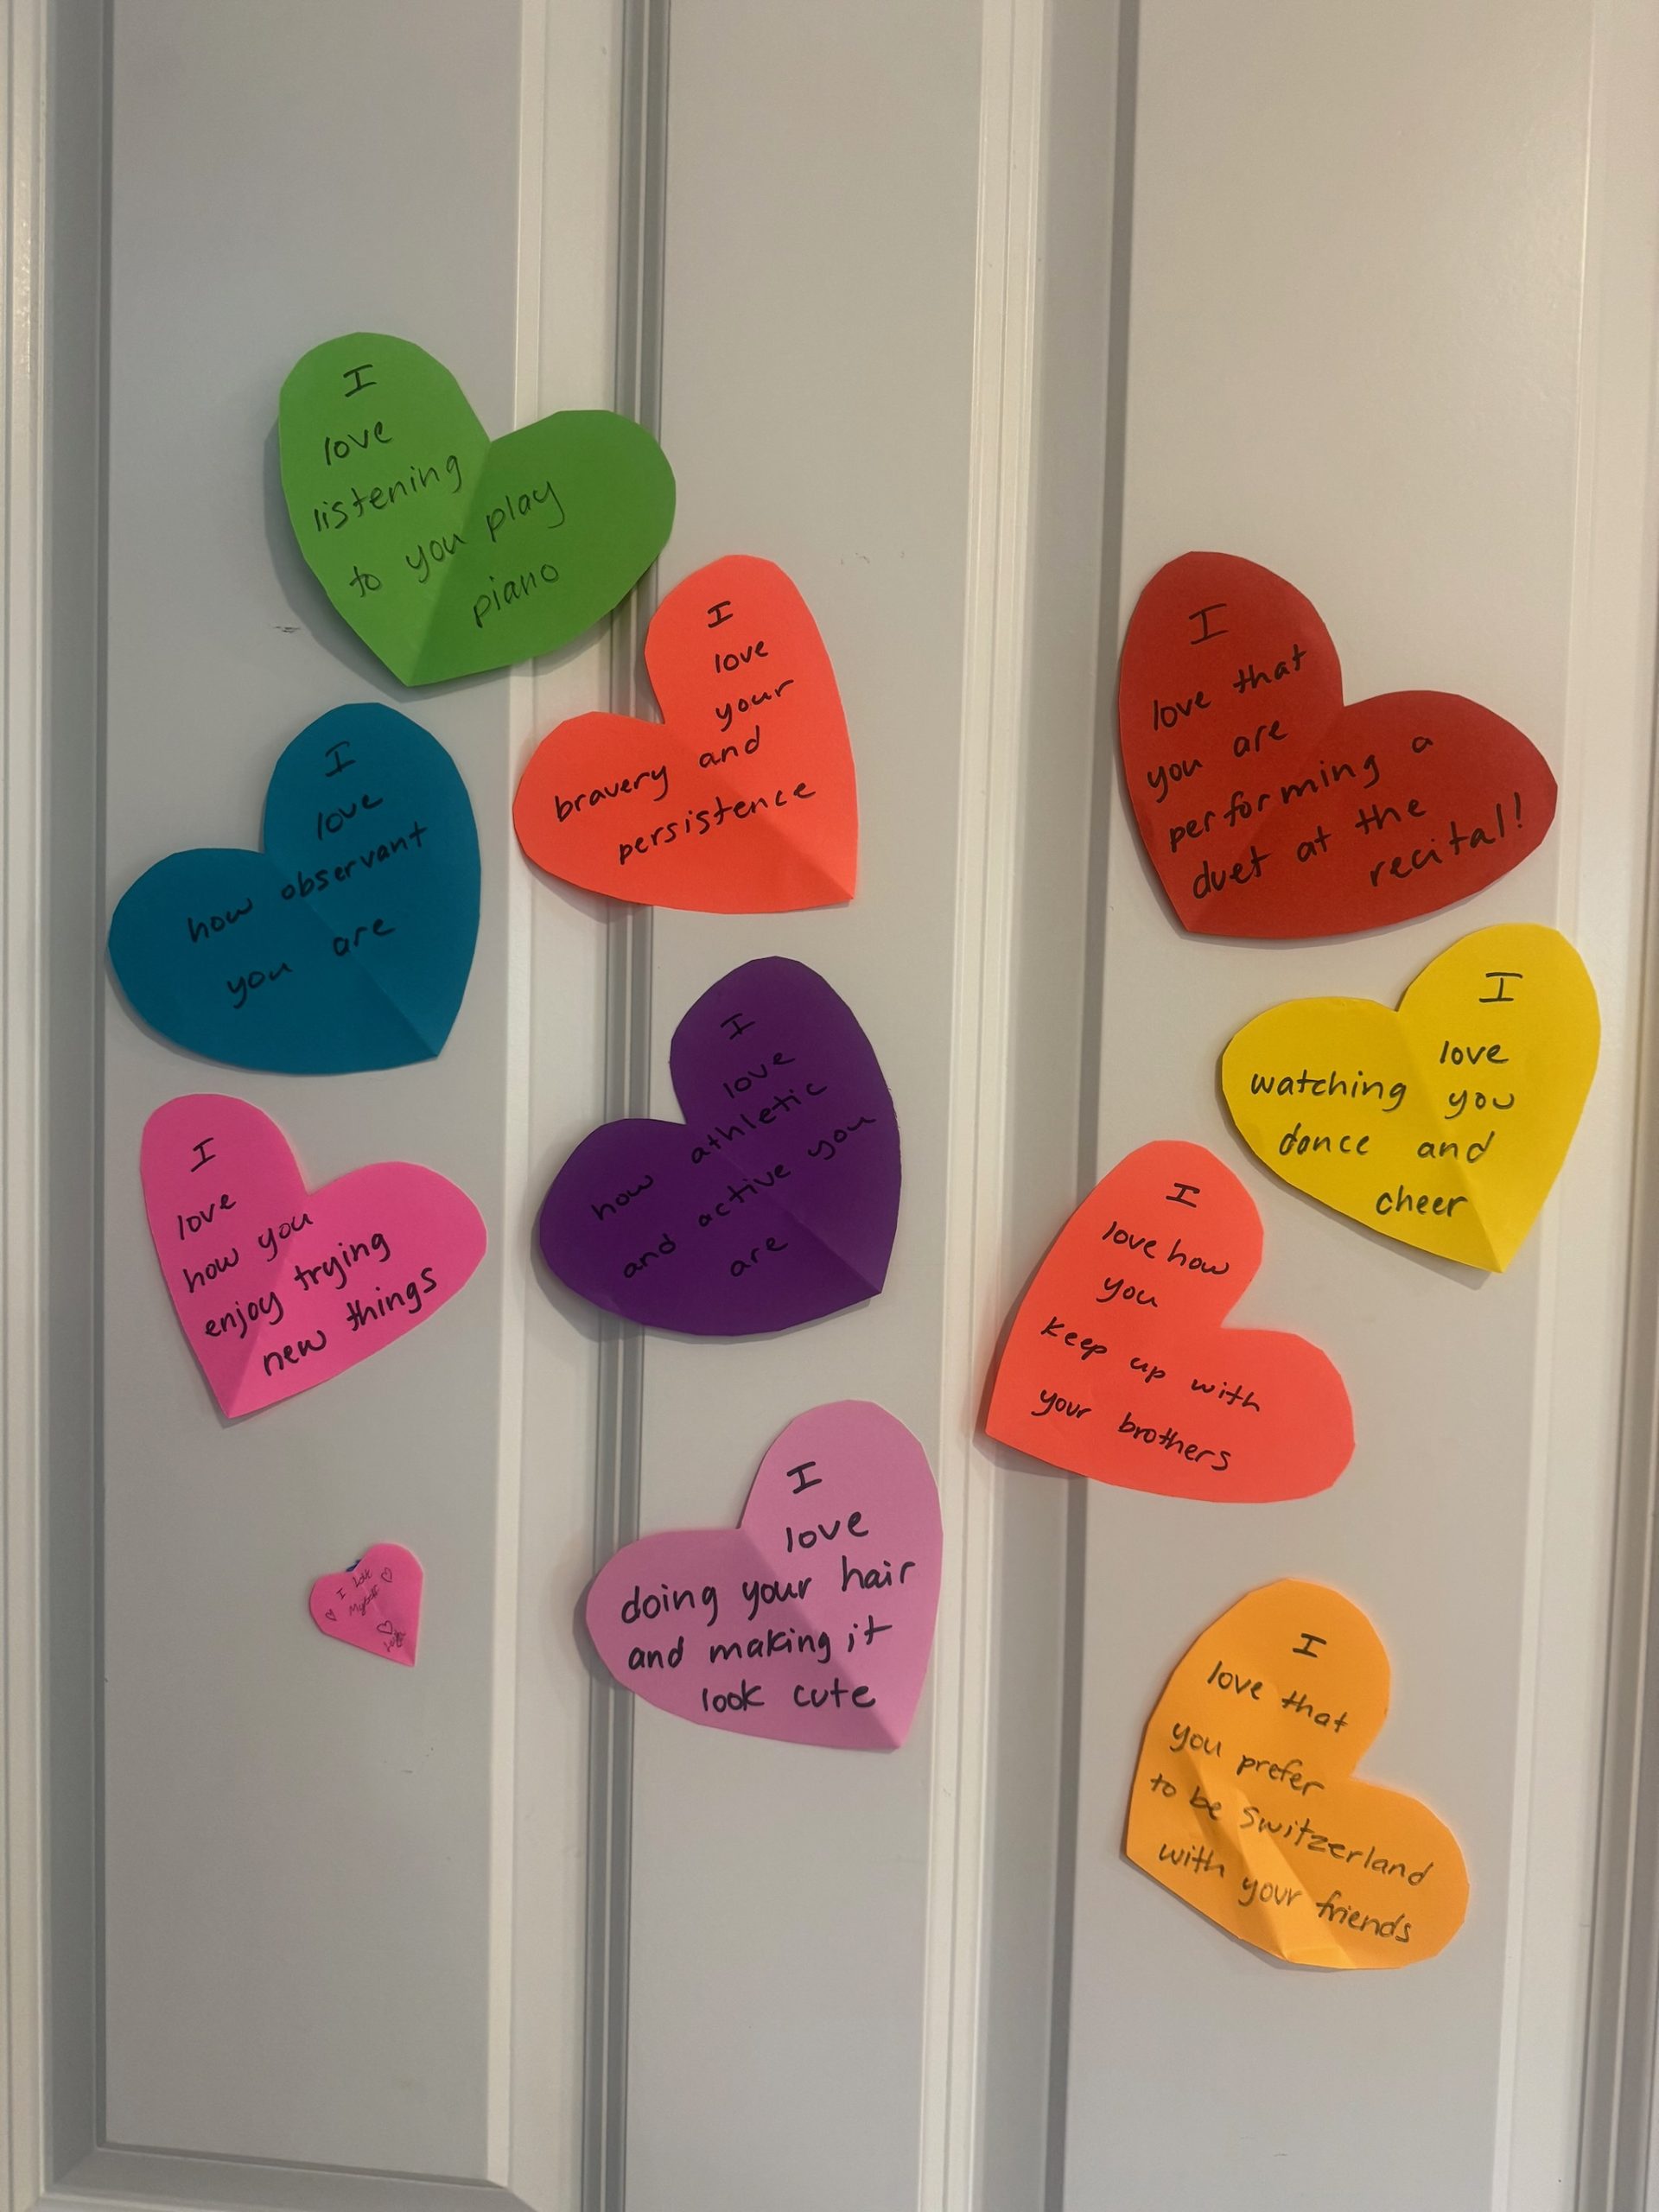 I
love
listening
to you play
piano
I
love
your
bravery and
persistence
I
love that
you are
performing a
duet at the
recital!
I
love
how observant
you are
I
love
how athletic
and active you
are
I
love
watching you
dance and
cheer
I
love
how you
enjoy trying
new things
I
love how
you
keep up with
your brothers
I
love
doing your hair
and making it
look cute
I love
Myself
I
love that
you prefer
to be Switzerland
with your friends